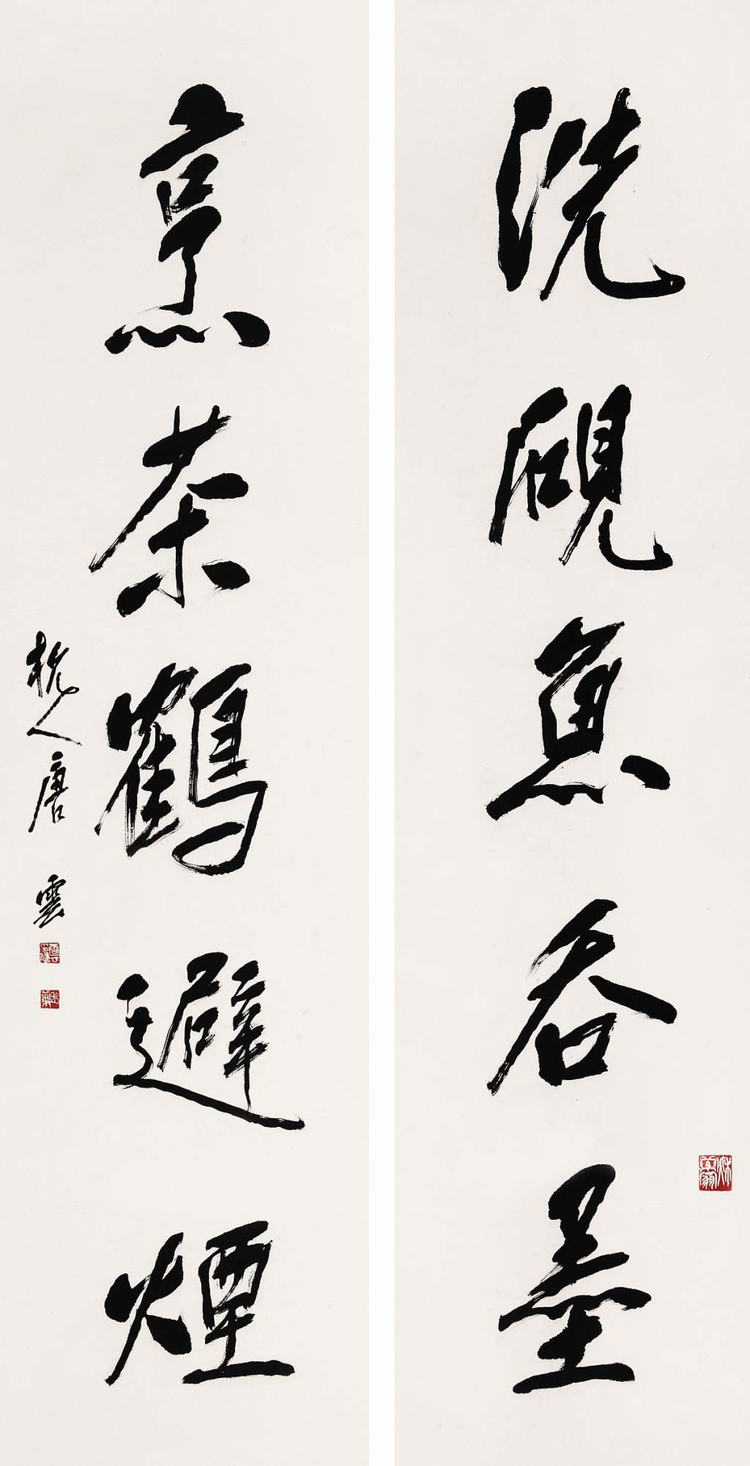 洗硯魚吞墨
烹茶鶴避煙
杭人唐雲